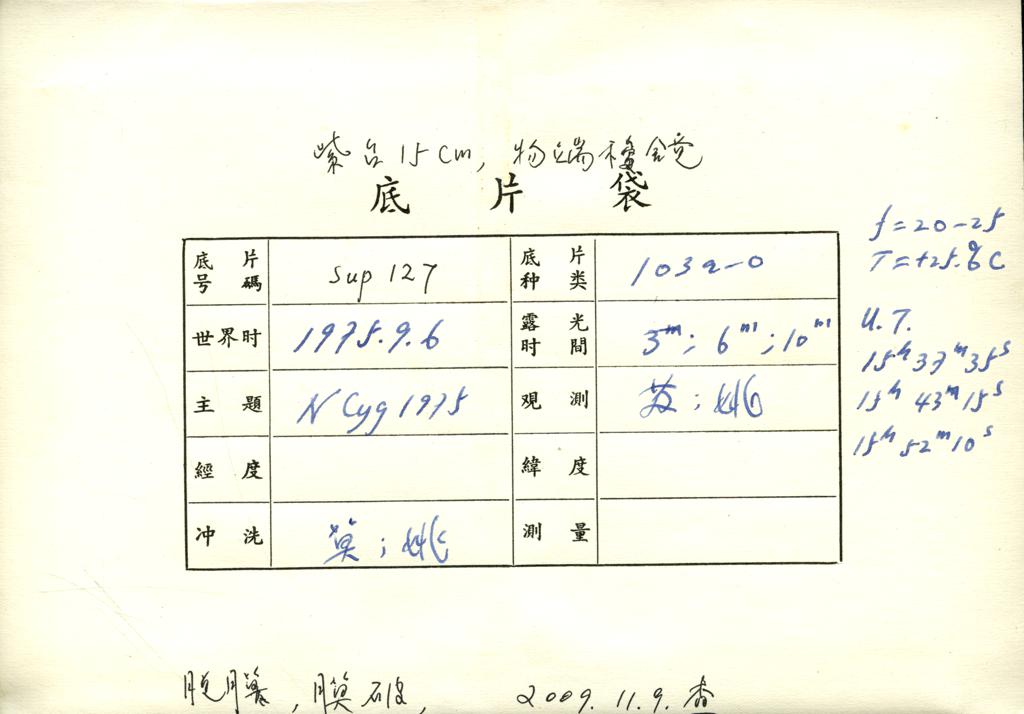 紫台15cm, 物端棱镜
底片袋
底片号碼 Sup 127 底片种类 103a-O
世界时 1975.9.6 露光时間 3m; 6m; 10m
主題 N Cyg 1975 观測 ; 姚
經度 緯度
冲洗 莫; 姚 測量
f=20-25
T=+25.8°C
U.T.
15h 37m 35s
15h 43m 15s
15h 52m 10s
脱膜, 膜破, 2009.11.9.